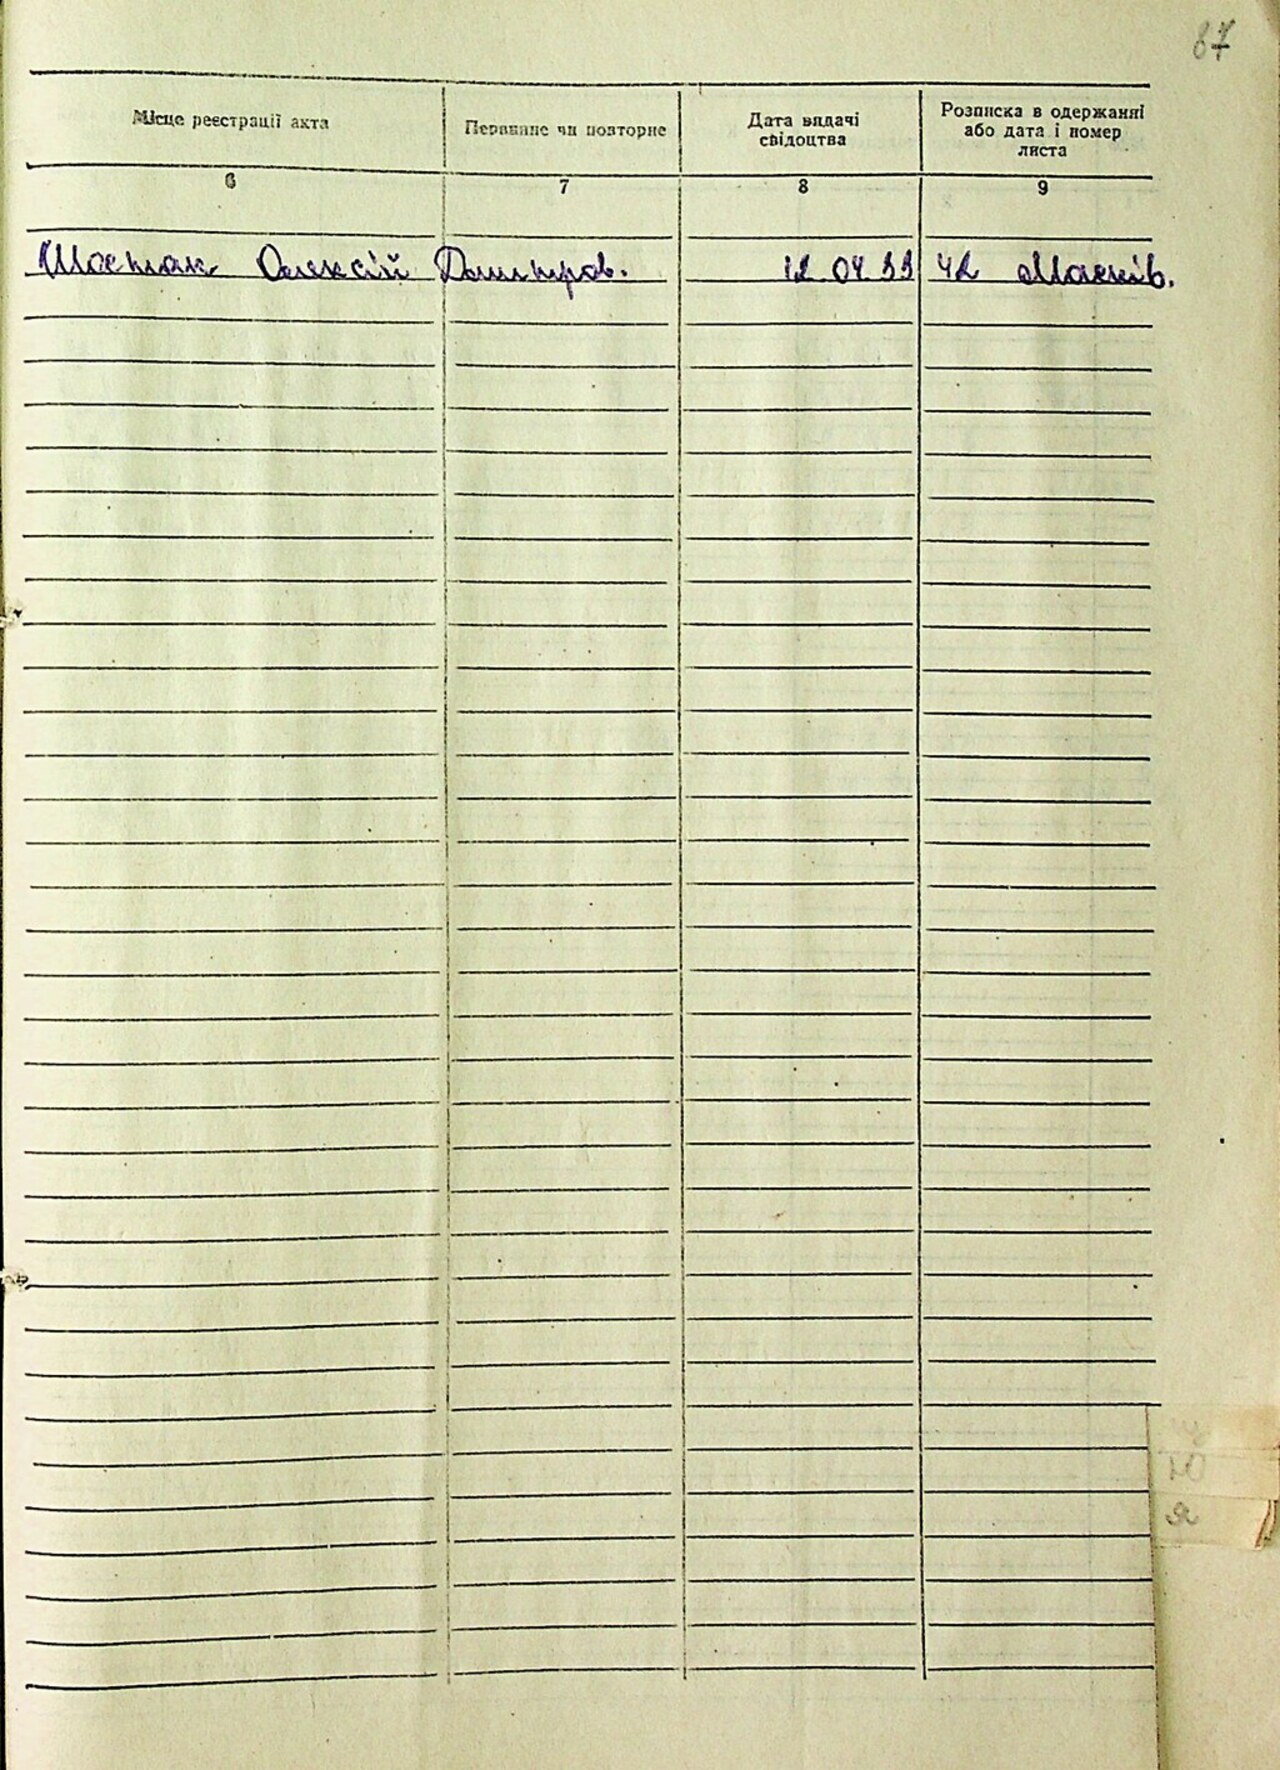 87
Місце реєстрації акта
Первинне чи повторне
Дата видачі
свідоцтва
Розписка в одержанні
або дата і номер
листа
6 7 8 9
Шостак Олексій Дмитров. 12 04 33 42 Маснів.
Я